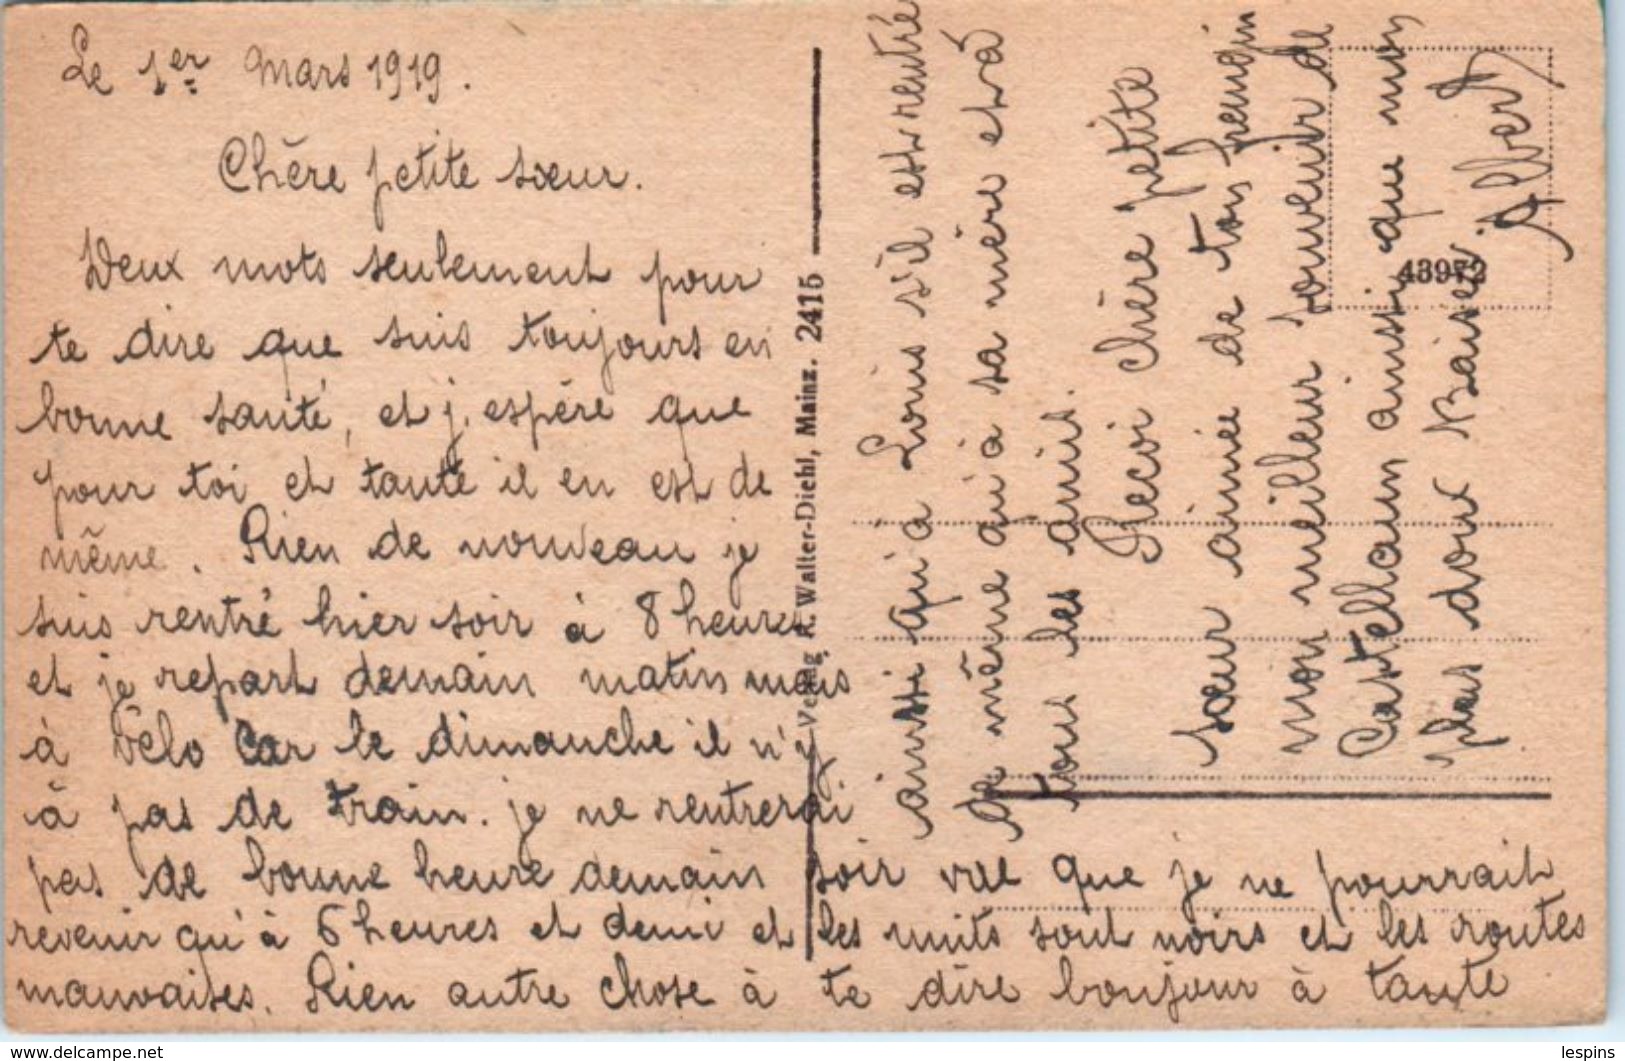 Le 1er Mars 1919.
Chère petite sœur.
Deux mots seulement pour
te dire que suis toujours en
bonne santé, et j'espère que
pour toi et tante il en est de
même. Rien de nouveau je
suis rentré hier soir à 8 heures
et je repart demain matin mais
à vélo car le dimanche il n'y
à pas de train. je ne rentrerai
pas de bonne heure demain soir vue que je ne pourrait
revenir qu'à 6 heures et demi et les nuits sont noirs et les routes
mauvaises. Rien autre chose à te dire bonjour à tante
ainsi qu'à Louis s'il est rentré
de même qu'à sa mère et à
tous les amis.
Recoi chère petite
sœur aimée de ton frangin
mon meilleur souvenir de
Castelhaun ainsi que mon
plus doux Baiser.
Albert
Verlag R. Walter-Diehl, Mainz. 2415
43972
lespins
www.delcampe.net